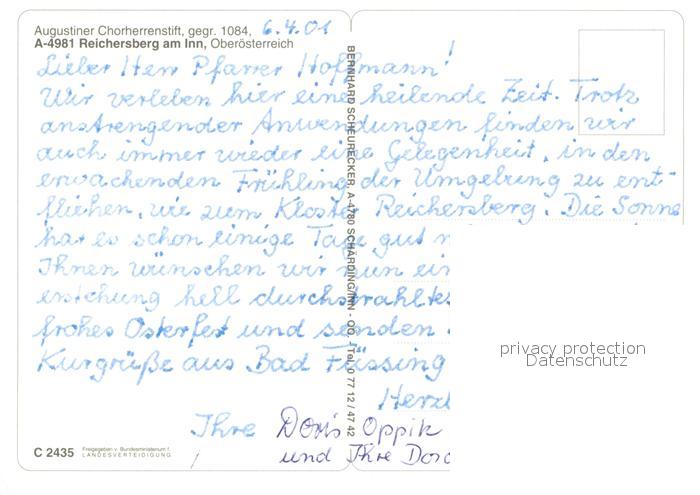 Augustiner Chorherrenstift, gegr. 1084, 6.4.01
A-4981 Reichersberg am Inn, Oberösterreich
Lieber Herr Pfarrer Hoffmann!
Wir verleben hier eine heilende Zeit. Trotz
anstrengender Anwendungen finden wir
auch immer wieder eine Gelegenheit, in den
erwachenden Frühling der Umgebung zu ent-
fliehen, wie zum Kloster Reichersberg. Die Sonne
hat es schon einige Tage gut
Ihnen wünschen wir nun ein
erstehung hell durchstrahltes
frohes Osterfest und senden
Kurgrüße aus Bad Füssing
Herzl
Ihre Doris Oppik
und Ihre Doro
BERNHARD SCHEURECKER, A-4780 SCHÄRDING/INN - OÖ. Tel. 0 77 12 / 47 42
privacy protection
Datenschutz
C 2435
Freigegeben v. Bundesministerium f.
LANDESVERTEIDIGUNG